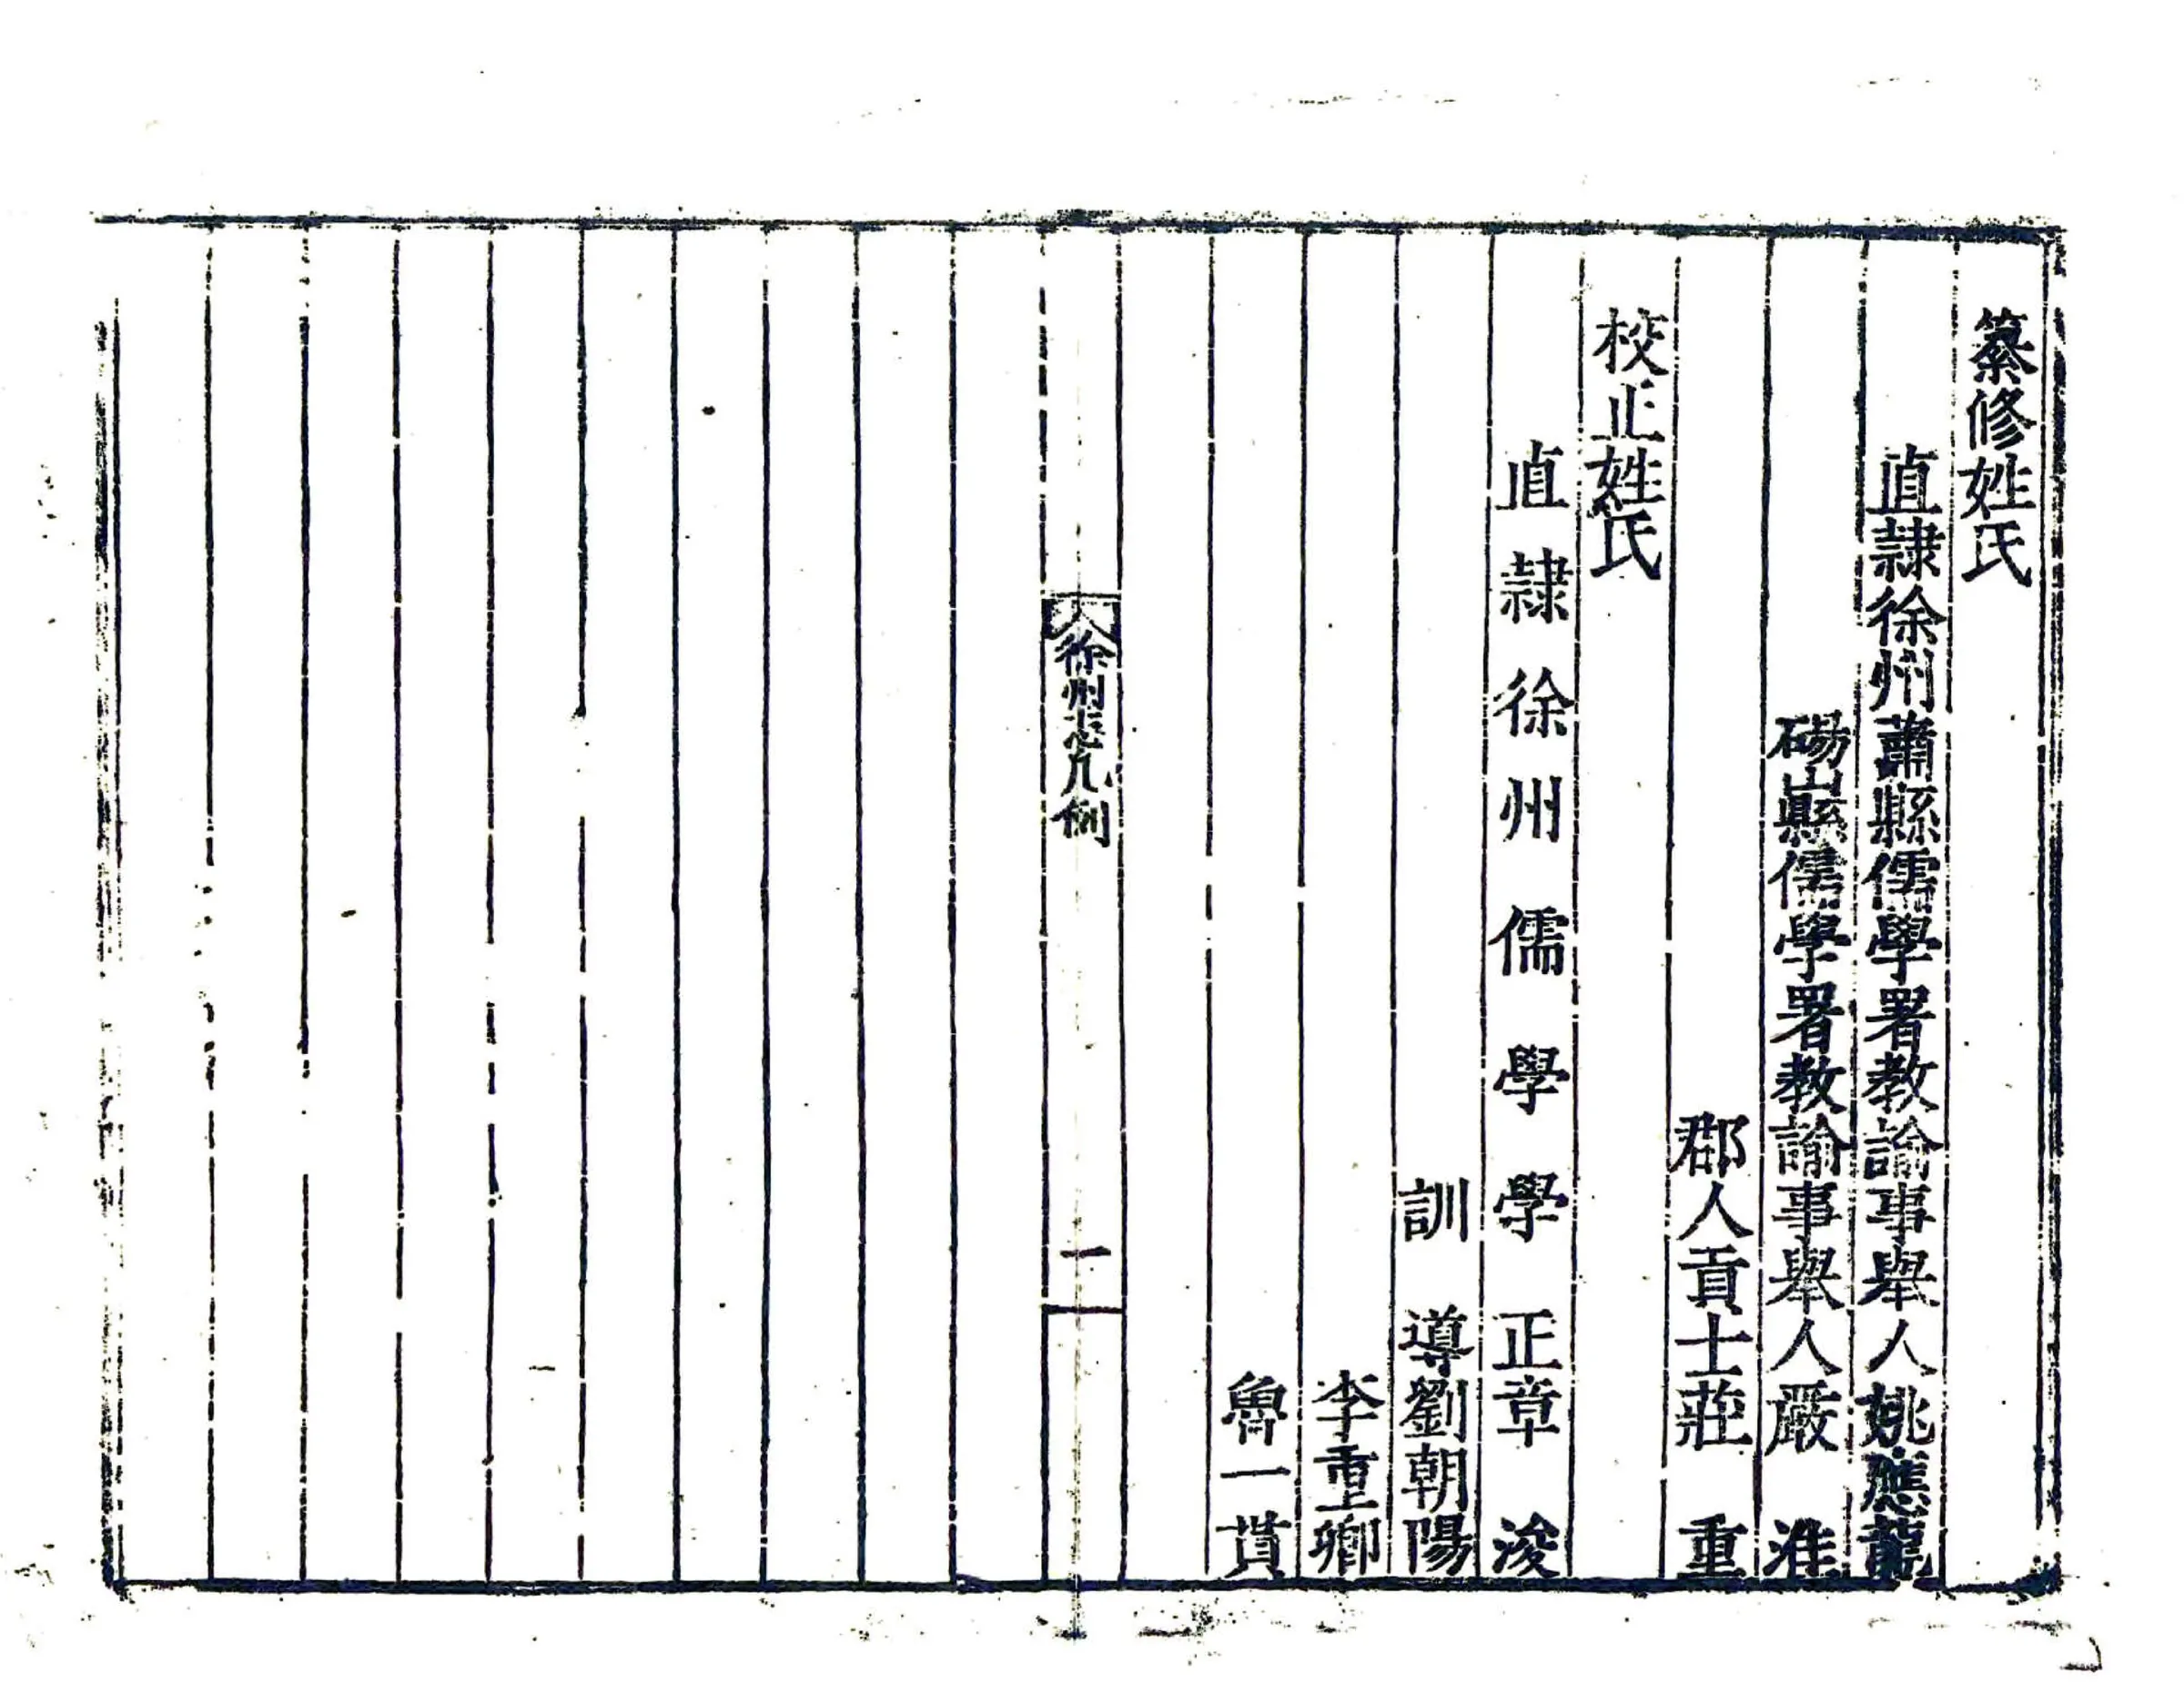 纂修姓氏
直隷徐州蕭縣儒學署教諭事舉人姚應龍
碭山縣儒學署教諭事舉人嚴　淮
郡人貢士莊　重
校正姓氏
直隷徐州儒學學正章　浚
訓　導劉朝陽
李重卿
魯一貫
徐州志凡例
一